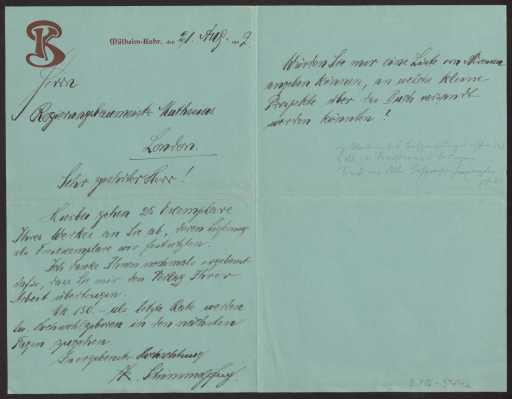 Mülheim-Ruhr, den 21. Aug. 190
Herrn
Regierungsbaumeister Muthesius
London.
Sehr geehrter Herr!
Hierbei gehen 25 Exemplare
Ihres Werkes an Sie ab, deren Lieferung
als Freiexemplare wir festsetzten.
Ich danke Ihnen nochmals ergebenst
dafür, dass Sie mir den Verlag Ihrer
Arbeit übertrugen.
Mk 150.– als letzte Rate werden
Ew. Hochwohlgeboren in den nächsten
Tagen zugehen.
Hochachtung
K. Schimmelpfeng.
Würden Sie mir eine Liste von
angeben können, an welche kleine
Prospekte über das Buch versandt
werden könnten?